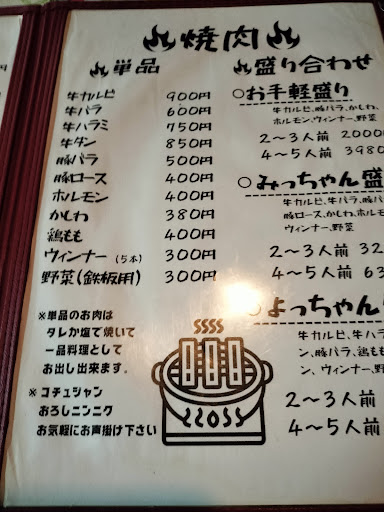 焼肉
単品
牛カルビ 900円
牛バラ 600円
牛ハラミ 750円
牛タン 850円
豚バラ 500円
豚ロース 400円
ホルモン 400円
かしわ 380円
鶏もも 400円
ウィンナー (5本) 300円
野菜(鉄板用) 300円
※単品のお肉は
タレか塩で焼いて
一品料理として
お出し出来ます。
※コチュジャン
おろしニンニク
お気軽にお声掛け下さい
盛り合わせ
○お手軽盛り
牛カルビ、豚バラ、かしわ、
ホルモン、ウィンナー、野菜
2〜3人前 2000
4〜5人前 3980
○みっちゃん盛
牛カルビ、牛バラ、豚バ
豚ロース、かしわ、ホルモ
ウィンナー、野菜
2〜3人前 32
4〜5人前 63
○よっちゃん
牛カルビ、牛ハラ
ン、豚バラ、鶏もも
ン、ウィンナー、野
2〜3人前
4〜5人前